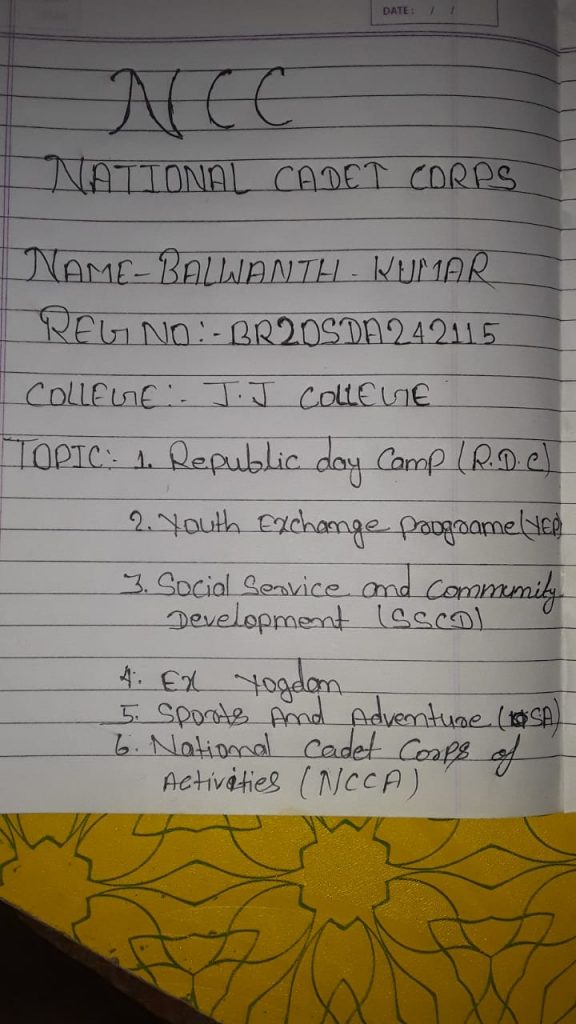 DATE: / /
NCC
NATIONAL CADET CORPS
NAME - BALWANTH - KUMAR
REG NO:- BR20SDA242115
COLLEGE:- J.J COLLEGE
TOPIC:- 1. Republic day Camp (R.D.C)
2. Youth Exchange Programe (YEP)
3. Social Service and Community
Development (SSCD)
4. Ex Yogdan
5. Sports And Adventure (SA)
6. National Cadet Corps of
Activities (NCCA)